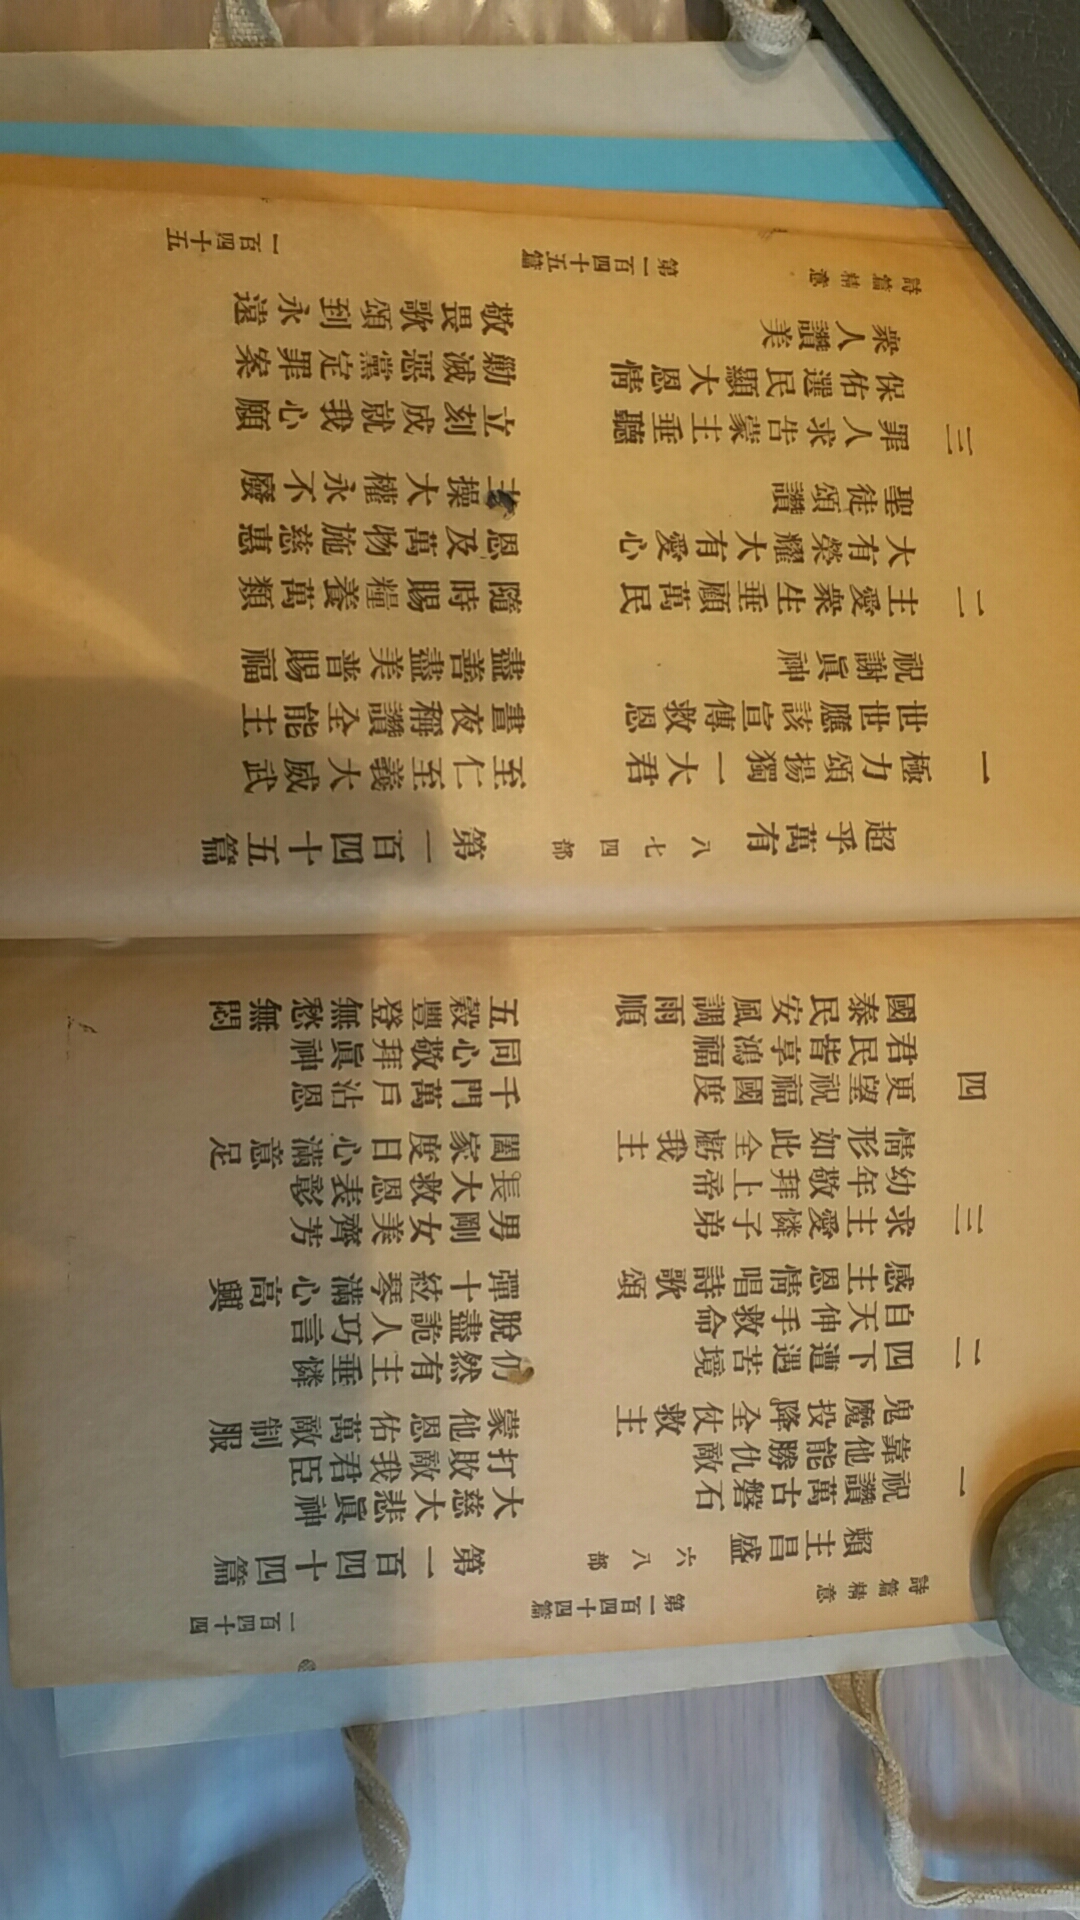 詩篇精意 第一百四十四篇 一百四十四
賴主昌盛 六八部 第一百四十四篇
一 祝讚萬古磐石 大慈大悲眞神
靠他能勝仇敵 打敗敵我君臣
鬼魔投降全仗救主 蒙他恩佑萬敵制服
二 四下遭遇苦境 仍然有主垂憐
自天伸手救命 脫盡詭人巧言
感主恩情唱詩歌頌 彈十絃琴滿心高興
三 求主愛憐子弟 男剛女美齊芳
幼年敬拜上帝 長大救恩表彰
情形如此全虧我主 闔家度日心滿意足
四 更望祝福國度 千門萬戶沾恩
君民皆享鴻福 同心敬拜眞神
國泰民安風調雨順 五穀豐登無愁無悶
超乎萬有 八七四部 第一百四十五篇
一 極力頌揚獨一大君 至仁至義大威武
世世應該宣傳救恩 晝夜稱讚全能主
祝謝眞神 盡善盡美普賜福
二 主愛衆生垂顧萬民 隨時賜糧養萬類
大有榮耀大有愛心 恩及萬物施慈惠
聖徒頌讚 主操大權永不廢
三 罪人求告蒙主垂聽 立刻成就我心願
保佑選民顯大恩情 勦滅惡黨定罪案
衆人讚美 敬畏歌頌到永遠
詩篇精意 第一百四十五篇 一百四十五